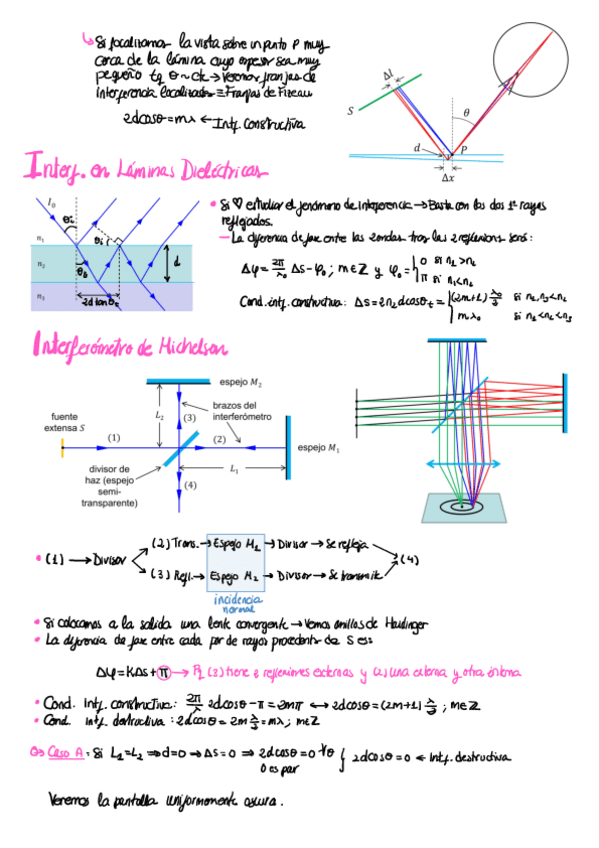 ↳ Si focalizamos la vista sobre un punto P muy
cerca de la lámina cuyo espesor sea muy
pequeño tq θ ~ cte → Veremos franjas de
interferencia localizadas ≡ Franjas de Fizeau
2dcosθ = mλ ← Intf. Constructiva
Δl
S
θ
d
P
Δx
Interf. en Láminas Dieléctricas
I₀
θi
θi
n₁
n₂
θt
d
n₃
2d tanθt
• Si ♡ estudiar el fenómeno de interferencia → Basta con los dos 1º rayos
reflejados.
— La diferencia de fase entre las 2 ondas tras las 2 reflexiones será:
Interferómetro de Michelson
espejo M₂
L₂
brazos del
interferómetro
fuente
extensa S
(1)
(3)
(2)
espejo M₁
L₁
divisor de
haz (espejo
semi-
transparente)
(4)
• (1) → Divisor
(2) Trans. → Espejo M₁ → Divisor → Se refleja
(3) Refl. → Espejo M₂ → Divisor → Se transmite
(4)
incidencia
normal
• Si colocamos a la salida una lente convergente → Vemos anillos de Haidinger
• La diferencia de fase entre cada par de rayos procedentes de S es:
Δφ = KΔs + π → (3) tiene 2 reflexiones externas y (2) una externa y otra interna
• Cond. Intf. constructiva: 2π/λ 2dcosθ - π = 2mπ ↔ 2dcosθ = (2m+1) λ/2 ; m∈Z
• Cond. intf. destructiva: 2dcosθ = 2m λ/2 = mλ ; m∈Z
Caso A: Si L₁=L₂ ⇒ d=0 ⇒ Δs=0 ⇒ 2dcosθ = 0 ∀θ
0 es par
2dcosθ = 0 ← Intf. destructiva
Veremos la pantalla uniformemente oscura.